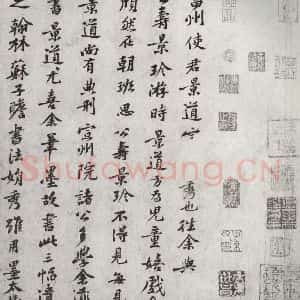 州使君景道 秀也往余與
公壽景珍游時景道方為兒童嬉戲
頎然在朝班思公壽景珍不得見每見
景道尚有典刑宣州院諸公多學余
書景道尤喜余筆墨故書此三幅遺
之翰林蘇子瞻書法娟秀雖用墨太
Shufawang.CN